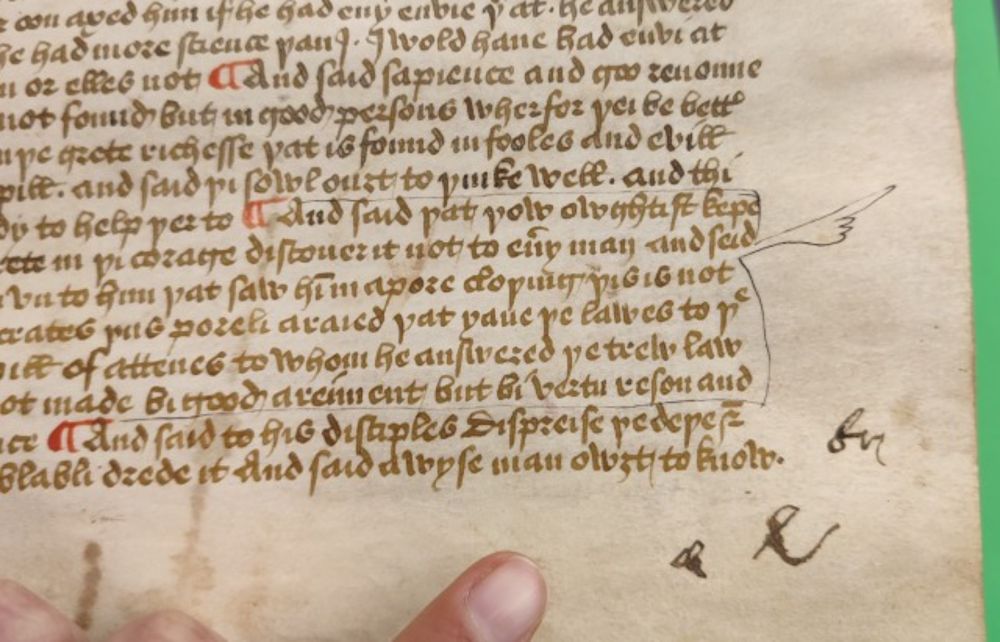 con axed him if he had eny envie þat. he answered
he had more science þan I. I wold haue had envi at
or elles not ¶ And said sapience and goo renoune
not found but in good persons wherfor þei be bettꝰ
þe grete richesse þat is found in fooles and evill
pill. and said þi sowl ouȝt to þinke well. and thi
dy to help þer to ¶ And said þat þow owghtist kepe
in þi corage discouer it not to eūy man and seid
vn to him þat saw hī in a pore cloþing þis is not
crates þus poreli araied þat yaue þe lawes to þᵉ
of attenes to whom he answered þe trew law
ot made bi good areiment but bi vertu reson and
¶ And said to his disciples Dispreise þe deþe
blabli drede it And said a wyse man owȝt to know.